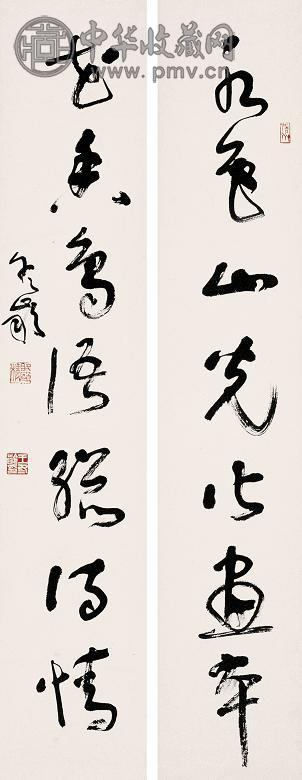 中华收藏网
www.pmv.cn
水色山光皆畫本
花香鳥語總詩情